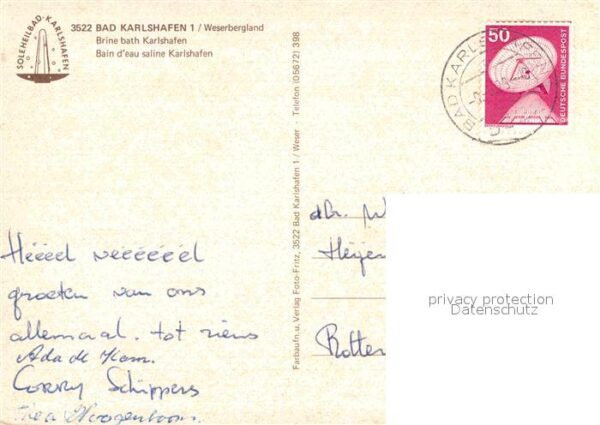 SOLEHEILBAD·KARLSHAFEN
3522 BAD KARLSHAFEN 1 / Weserbergland
Brine bath Karlshafen
Bain d'eau saline Karlshafen
50
DEUTSCHE BUNDESPOST
BAD KARLS
Farbaufn. u. Verlag Foto-Fritz, 3522 Bad Karlshafen 1 / Weser · Telefon (05672) 398
Hééél véééééél
groeten van ons
allemaal. tot ziens
Ada de Kom.
Corry Schippers
Thea Hoogenboom.
dhr. W
Heije
Rotter
privacy protection
Datenschutz